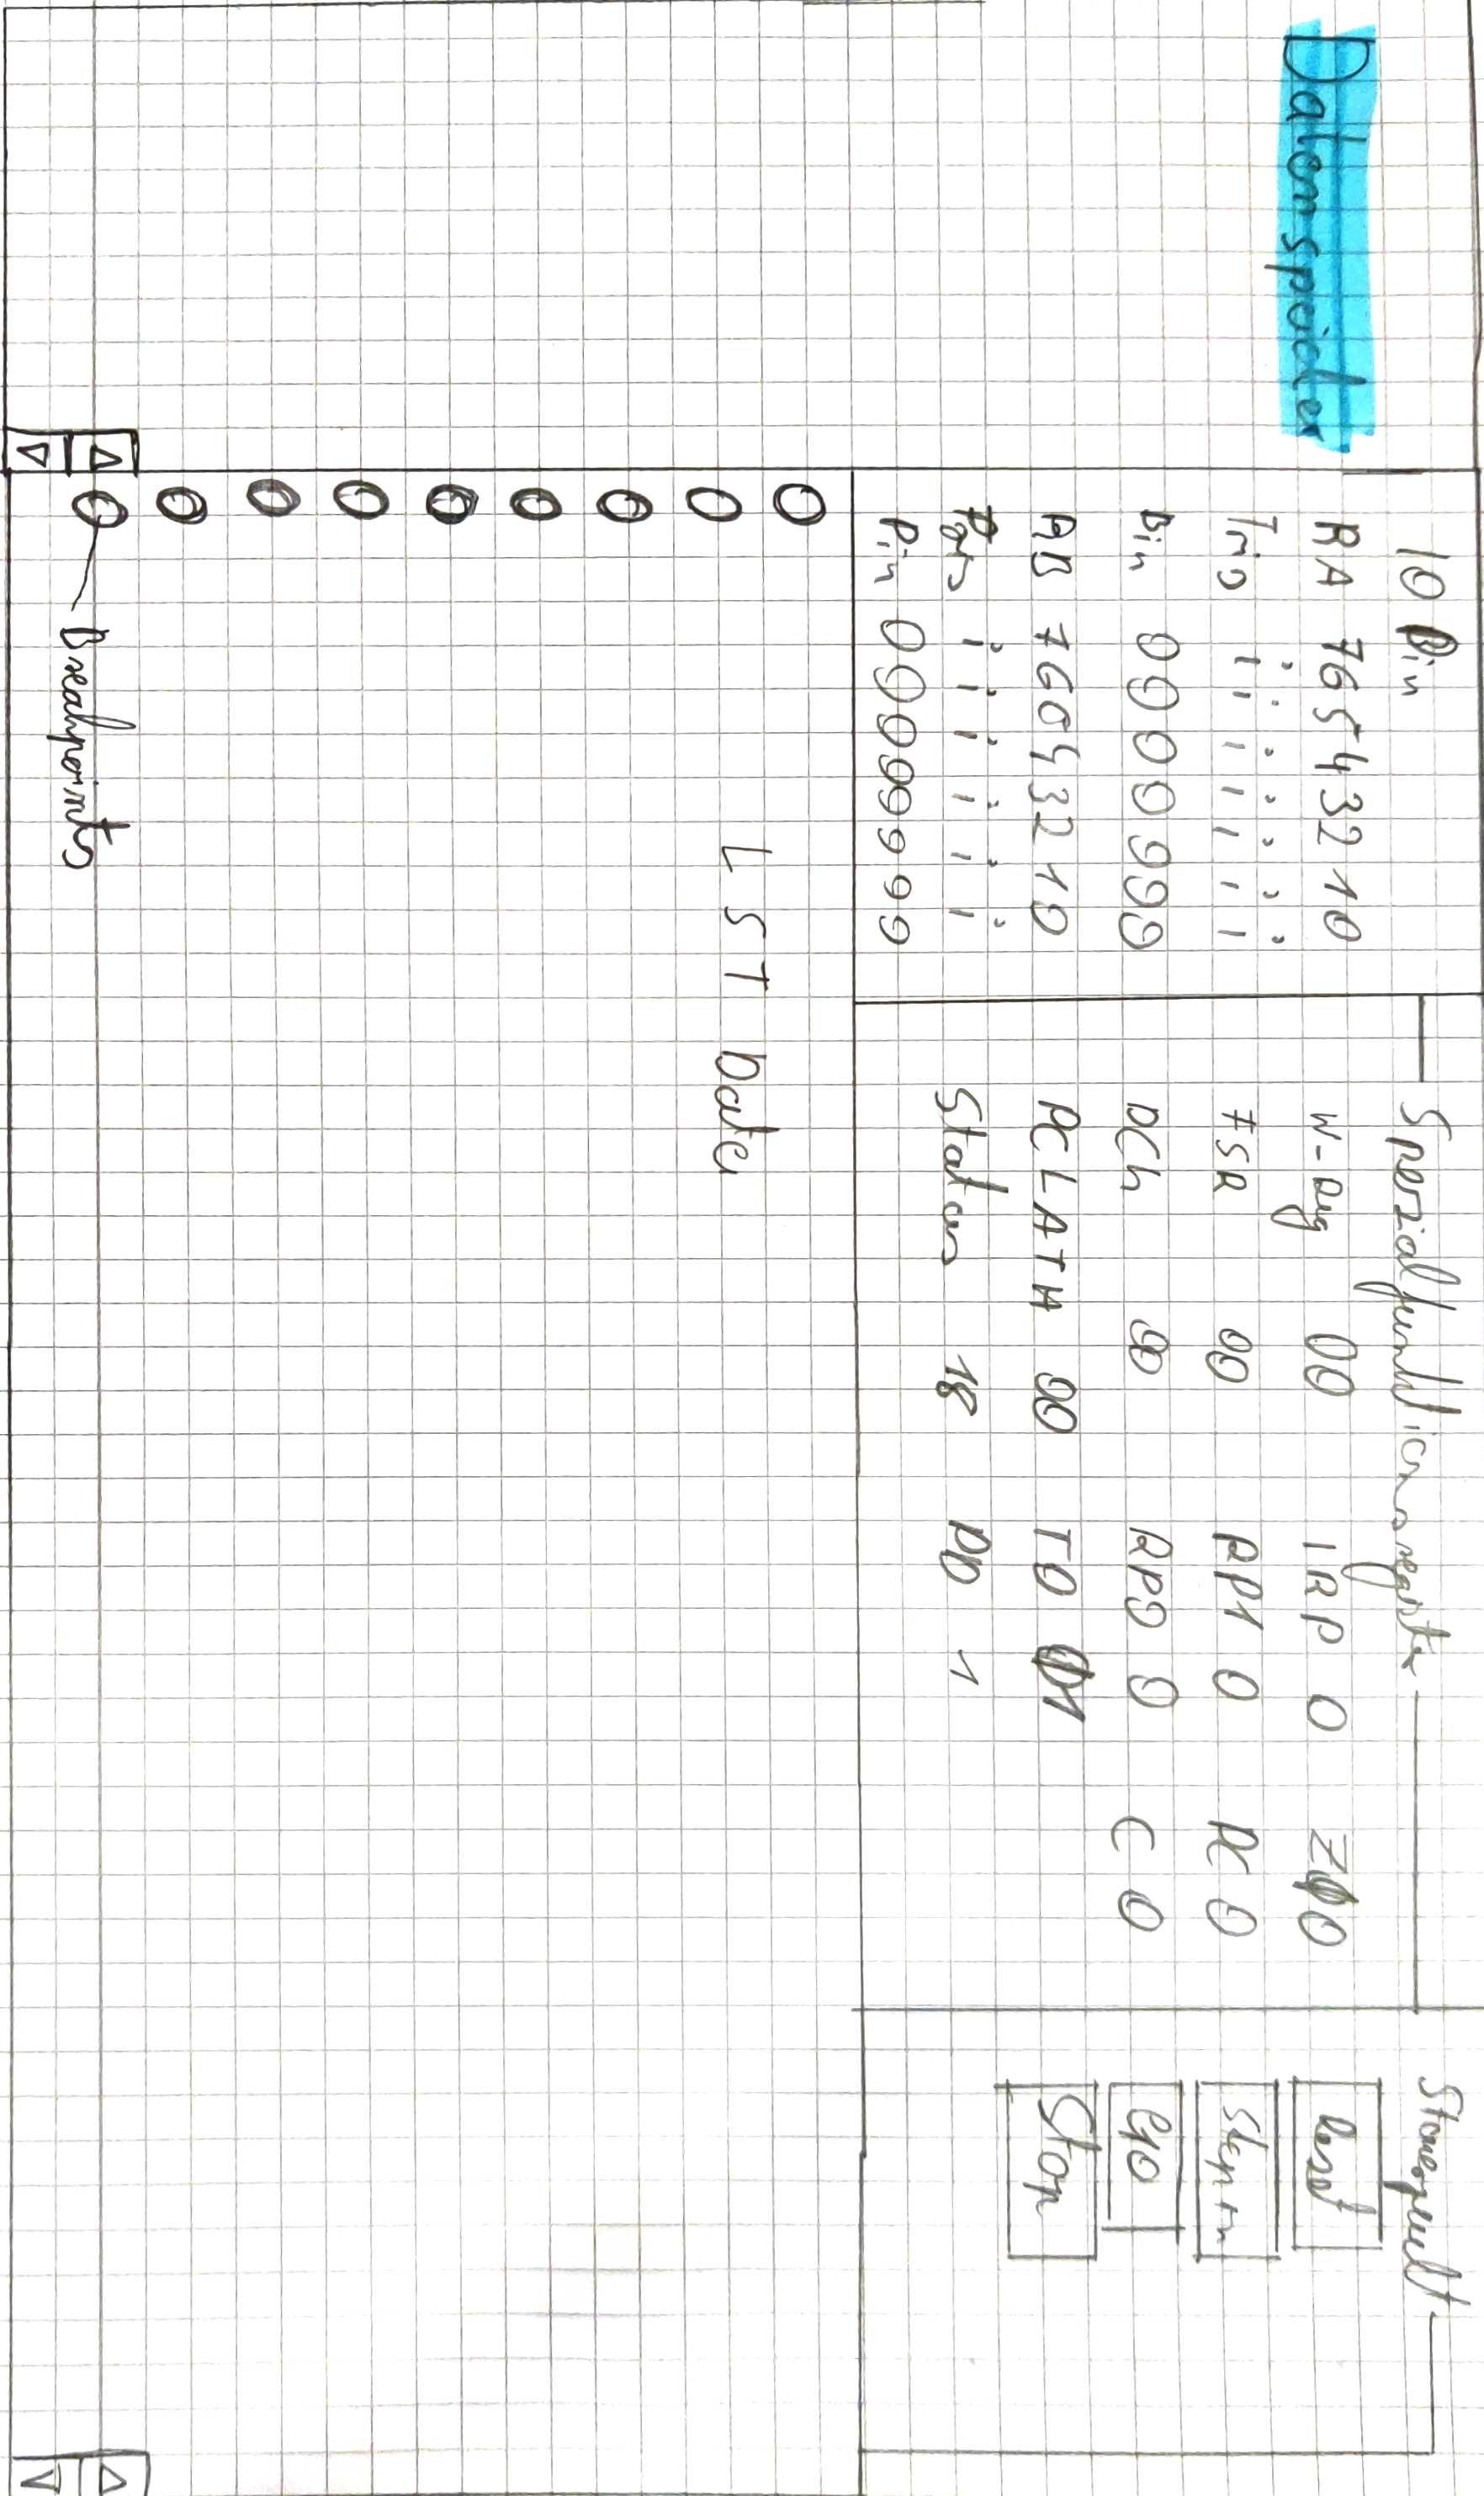 Datenspeicher
IO Pin
RA 7 6 5 4 3 2 1 0
Tris i i i i i i i i
Pin 0 0 0 0 0 0 0 0
RB 7 6 5 4 3 2 1 0
Tris i i i i i i
Pin 0 0 0 0 0 0 0 0
Spezialfunktionsregister
W-Reg 00 IRP 0 Z 0
FSR 00 RP1 0 DC 0
PCL 00 RP0 0 C 0
PCLATH 00 TO 1
Status 18 PD 1
Steuerpult
Reset
Step in
GO
Stop
LST Datei
Breakpoints